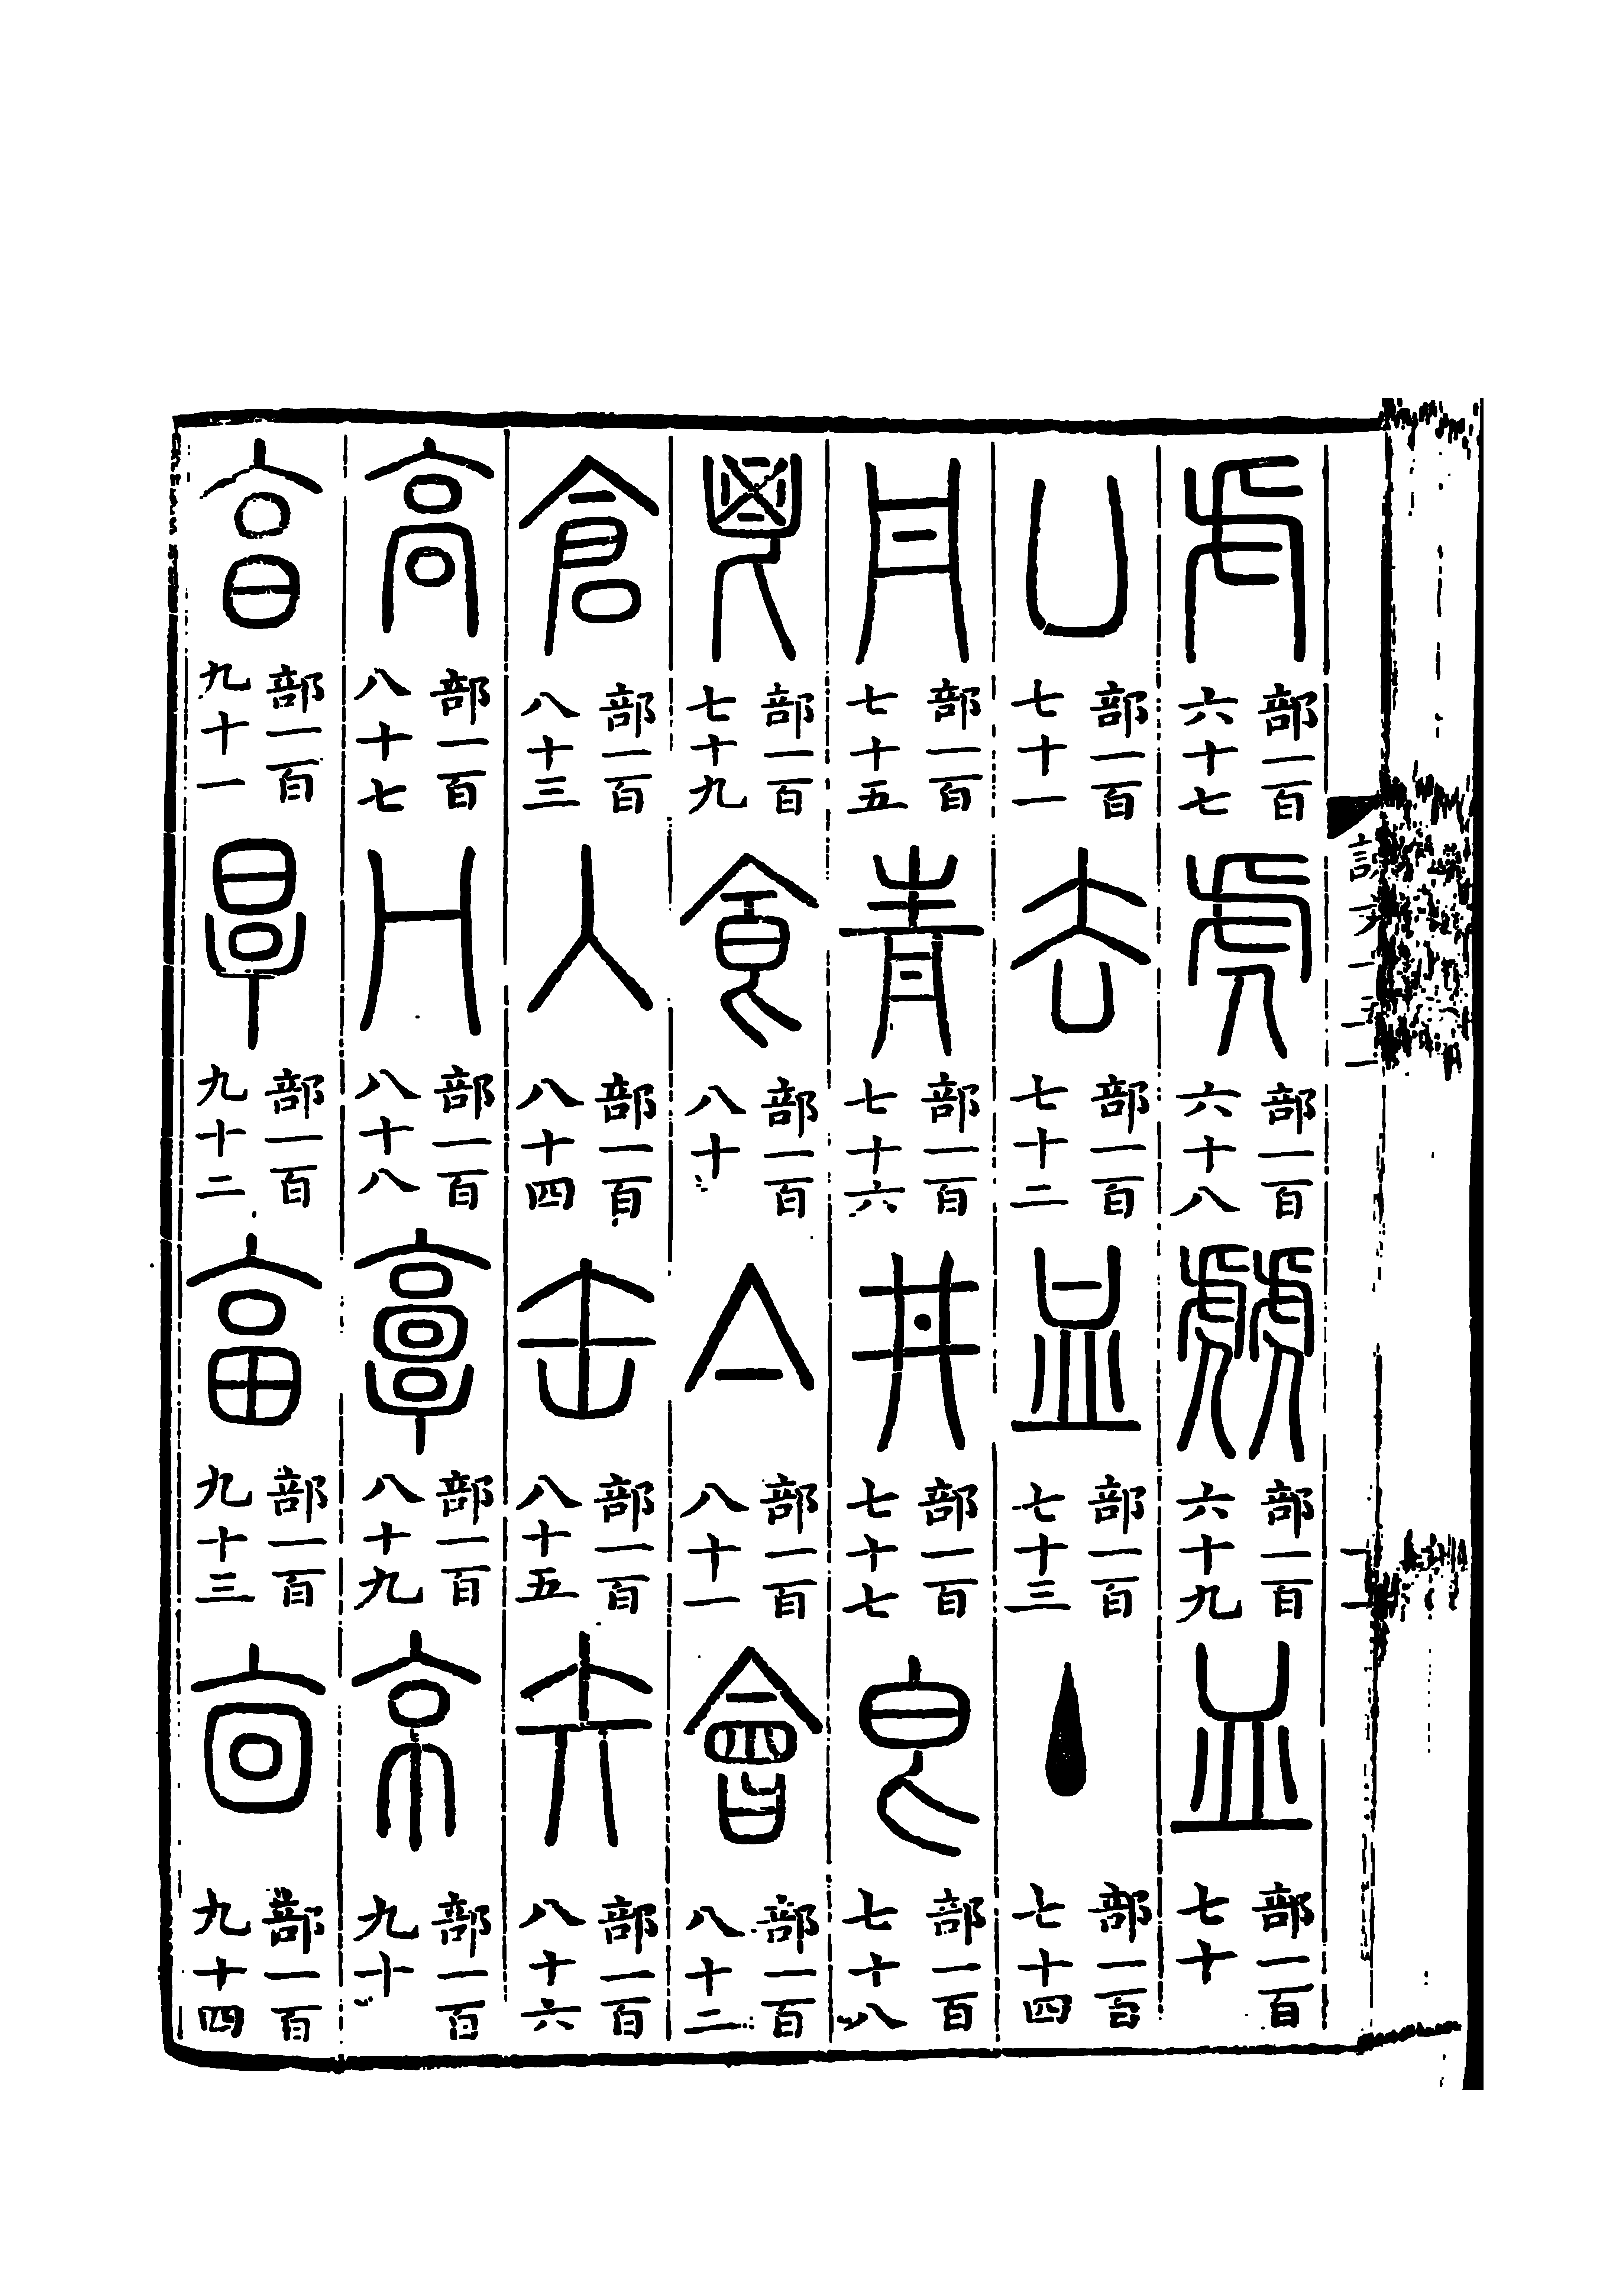 虍部一百六十七虎部一百六十八虤部一百六十九皿部一百七十
凵部一百七十一去部一百七十二血部一百七十三丶部一百七十四
丹部一百七十五青部一百七十六井部一百七十七皀部一百七十八
鬯部一百七十九食部一百八十亼部一百八十一會部一百八十二
倉部一百八十三入部一百八十四缶部一百八十五矢部一百八十六
高部一百八十七冂部一百八十八𩫖部一百八十九京部一百九十
亯部一百九十一㫗部一百九十二畗部一百九十三㐭部一百九十四